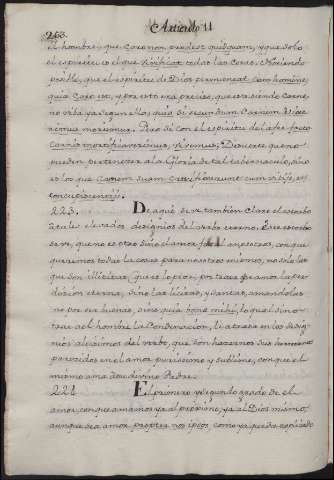 268. Articulo 11
el hombre, que Caro non prodest quidquam, y que solo
el espiritu es el que vivificat todas las cosas. No siendo
posible, que el espiritu de Dios permaneat cum homine,
quia caro est, y por esto era preciso, que
no segun ella, quia si secundum Carnem vixe
ritis moriemini. Pero si con el espiritu facta
Carnis mortificaveritis, vivemus. De suerte que no
pueden pertenecer a la Gloria de tal tabernaculo, sino
es los que carnem suam crucifixerunt cum vitijs, et
concupiscentijs.
223. De aqui se ve tambien claro el estorbo
a tales elevados designios del verbo eterno. Este estorbo
se ve, que no es otro sino el amor concupiscencia, con que
queremos todas las cosas para nosotros mismos, no solo las
que son illicitas, que es lo peor, por traer al alma la per
dicion eterna, sino las licitas, y santas, amandolas
no por ser buenas, sino quia bona mihi, lo qual sino
trae al hombre la Condenacion, le atrasa en los desig
nios altisimos del verbo, que son hacernos sus hermanos
parecidos en el amor purissimo y sublime, con que el
mismo ama a su divino Padre.
224. El primero y segundo grado de el
amor, con que amamos ya al proximo, ya al Dios mismo,
aunque sea amor propter nos ipsos, como ya queda explicado